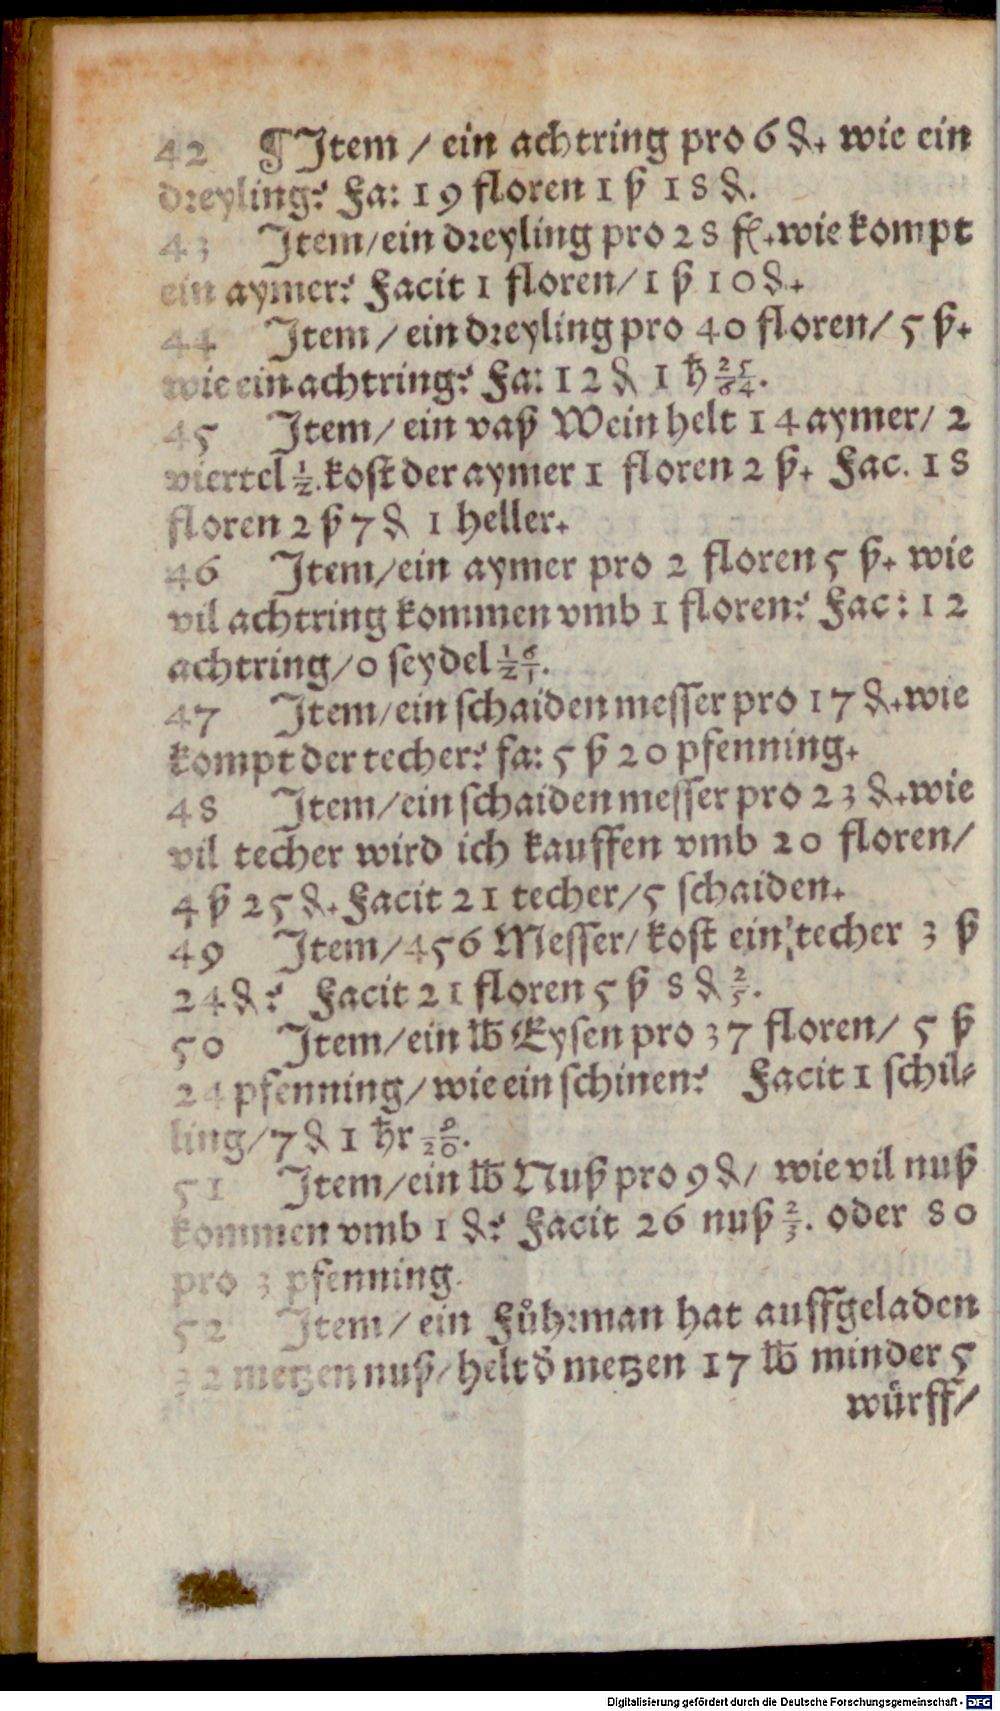 42 ¶Item / ein achtring pro 6 ₰. wie ein
dreyling? Fa: 19 floren 1 ß 18 ₰.
43 Item/ein dreyling pro 28 fl. wie kompt
ein aymer? Facit 1 floren/1 ß 10 ₰.
44 Item / ein dreyling pro 40 floren/ 5 ß.
wie ein achtring? Fa: 12 ₰ 1 ħ 25/64.
45 Item/ ein vaß Wein helt 14 aymer/ 2
viertel ½. kost der aymer 1 floren 2 ß. Fac. 18
floren 2 ß 7 ₰ 1 heller.
46 Item/ein aymer pro 2 floren 5 ß. wie
vil achtring kommen vmb 1 floren? Fac: 12
achtring/0 seydel 16/21.
47 Item/ein schaiden messer pro 17 ₰. wie
kompt der techer? fa: 5 ß 20 pfenning.
48 Item/ein schaiden messer pro 23 ₰. wie
vil techer wird ich kauffen vmb 20 floren/
4 ß 25 ₰. Facit 21 techer/5 schaiden.
49 Item/456 Messer/ kost ein techer 3 ß
24 ₰? Facit 21 floren 5 ß 8 ₰ 2/5.
50 Item/ein ℔ Eysen pro 37 floren/ 5 ß
24 pfenning/ wie ein schinen? Facit 1 schil⸗
ling/7 ₰ 1 ħr 9/20.
51 Item/ein ℔ Nuß pro 9 ₰/ wie vil nuß
kommen vmb 1 ₰? Facit 26 nuß 2/3. oder 80
pro 3 pfenning.
52 Item/ ein Fůhrman hat auffgeladen
32 metzen nuß/ helt ð metzen 17 ℔ minder 5
würff/
Digitalisierung gefördert durch die Deutsche Forschungsgemeinschaft - DFG